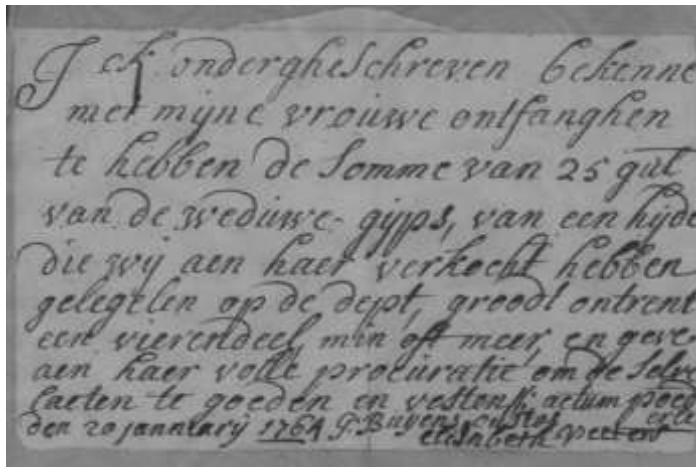 Ick ondergheschreven bekenne
met mijne vrouwe ontfanghen
te hebben de somme van 25 gul
van de weduwe gijps, van een hijde
die wij aen haer verkocht hebben
gelegelen op de dept, groodt ontrent
een vierendeel, min oft meer, en geve
aen haer volle procuratie om de selve
laeten te goeden en vesten actum poed
erle
den 20 januarij 1764 G. Buyens custos
elisabeth Peeters